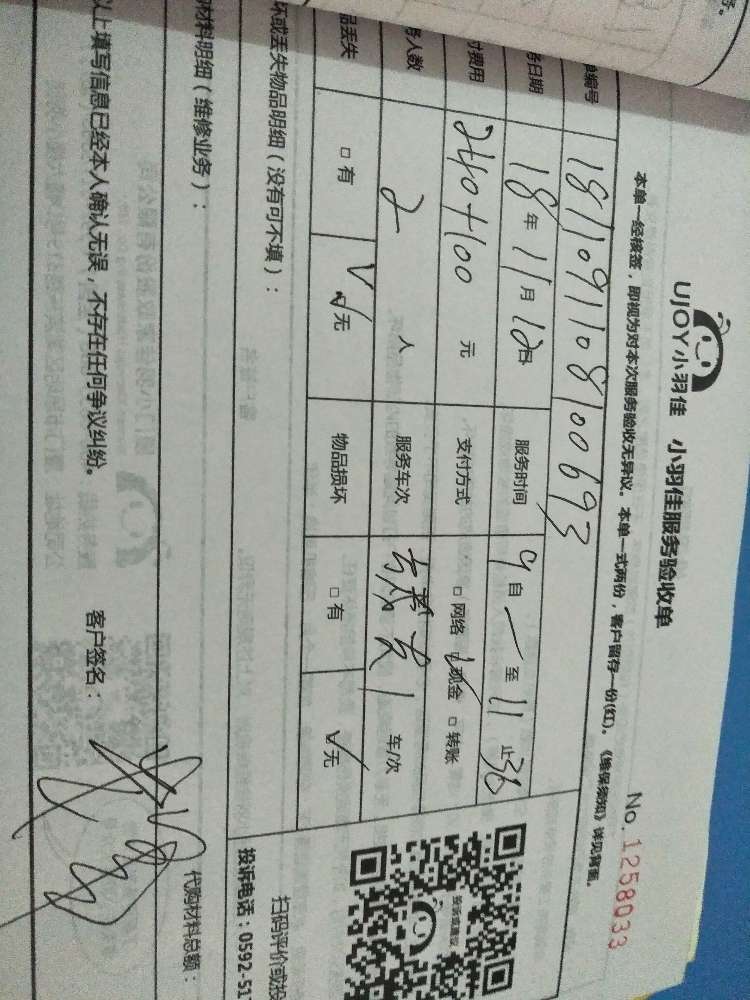 UJOY小羽佳 小羽佳服务验收单
No. 1258033
本单一经核签，即视为对本次服务验收无异议。本单一式两份，客户留存一份(红)。《维保须知》详见背面。
单编号 181109110810069 3
务日期 18年11月12日 服务时间 9自一至11止36
付费用 240+100元 支付方式 □网络 ☑现金 □转账
务人数 2人 服务车次 1车/次
品丢失 □有 ☑无 物品损坏 □有 ☑无
坏或丢失物品明细（没有可不填）：
扫码评价或投
投诉电话：0592-51
材料明细（维修业务）： 代购材料总额：
以上填写信息已经本人确认无误，不存在任何争议纠纷。 客户签名：